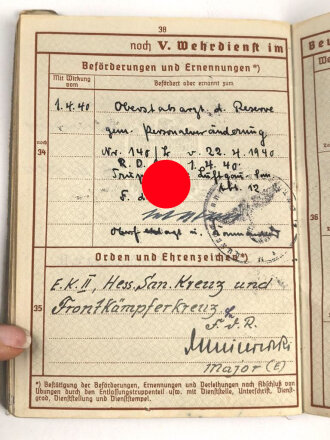 38
noch V. Wehrdienst im
Beförderungen und Ernennungen*)
Mit Wirkung vom
Befördert oder ernannt zum
1.4.40 Oberstabsarzt d. Reserve
gem. Personalveränderung
noch 34
Nr. 140/ v. 22.4.1940
R. D. 1.4.40.
Abt. 12
Oberfeldarzt u.
Orden und Ehrenzeichen*)
35
E.K.II, Hess. San. Kreuz und
Frontkämpferkreuz
F.d.R.
Major (E)
*) Bestätigung der Beförderungen, Ernennungen und Verleihungen nach Abschluß von
Übungen durch den Entlassungstruppenteil usw. mit Dienststelle, Unterschrift, Dienst-
grad, Dienststellung und Dienststempel.